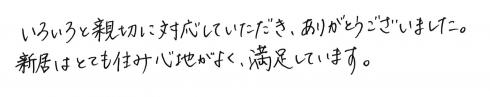 いろいろと親切に対応していただき、ありがとうございました。
新居はとても住み心地がよく、満足しています。